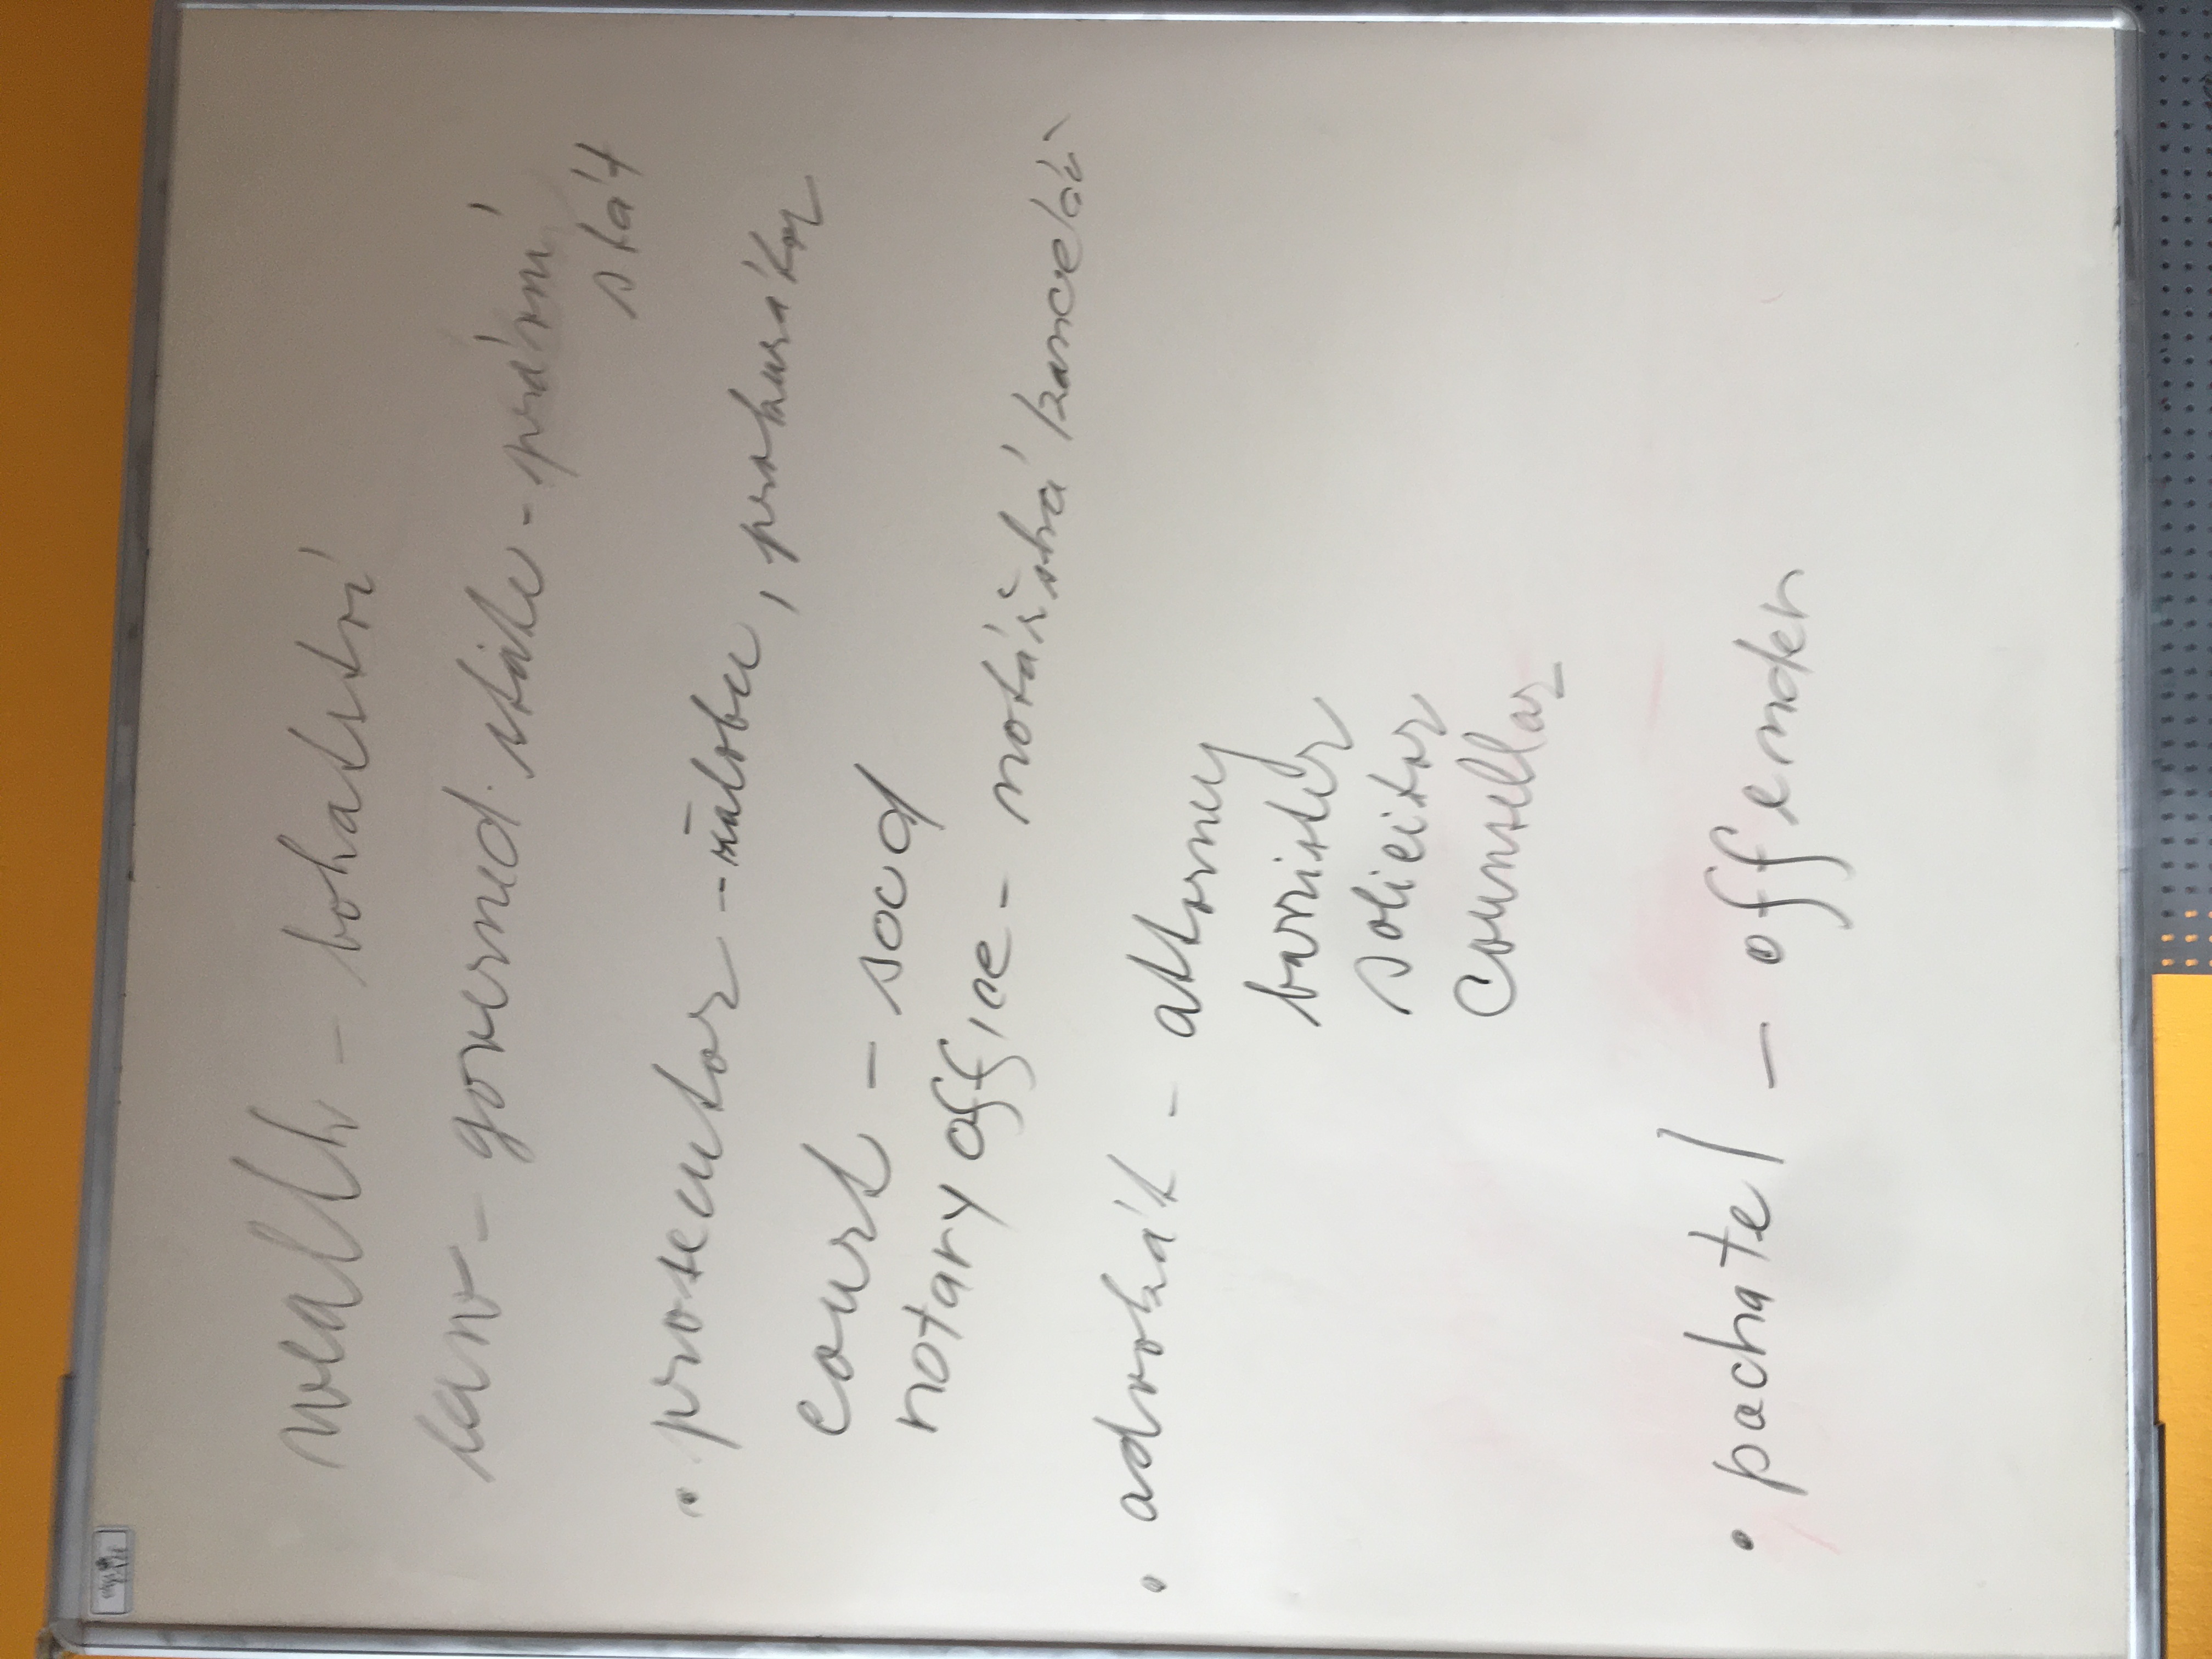 wealth - bohatství
law-governed state - právní
stát
• prosecutor - žalobce, prokurátor
court - soud
notary office - notářská kancelář
• advokát - attorney
barrister
solicitor
counsellor
• pachatel - offender